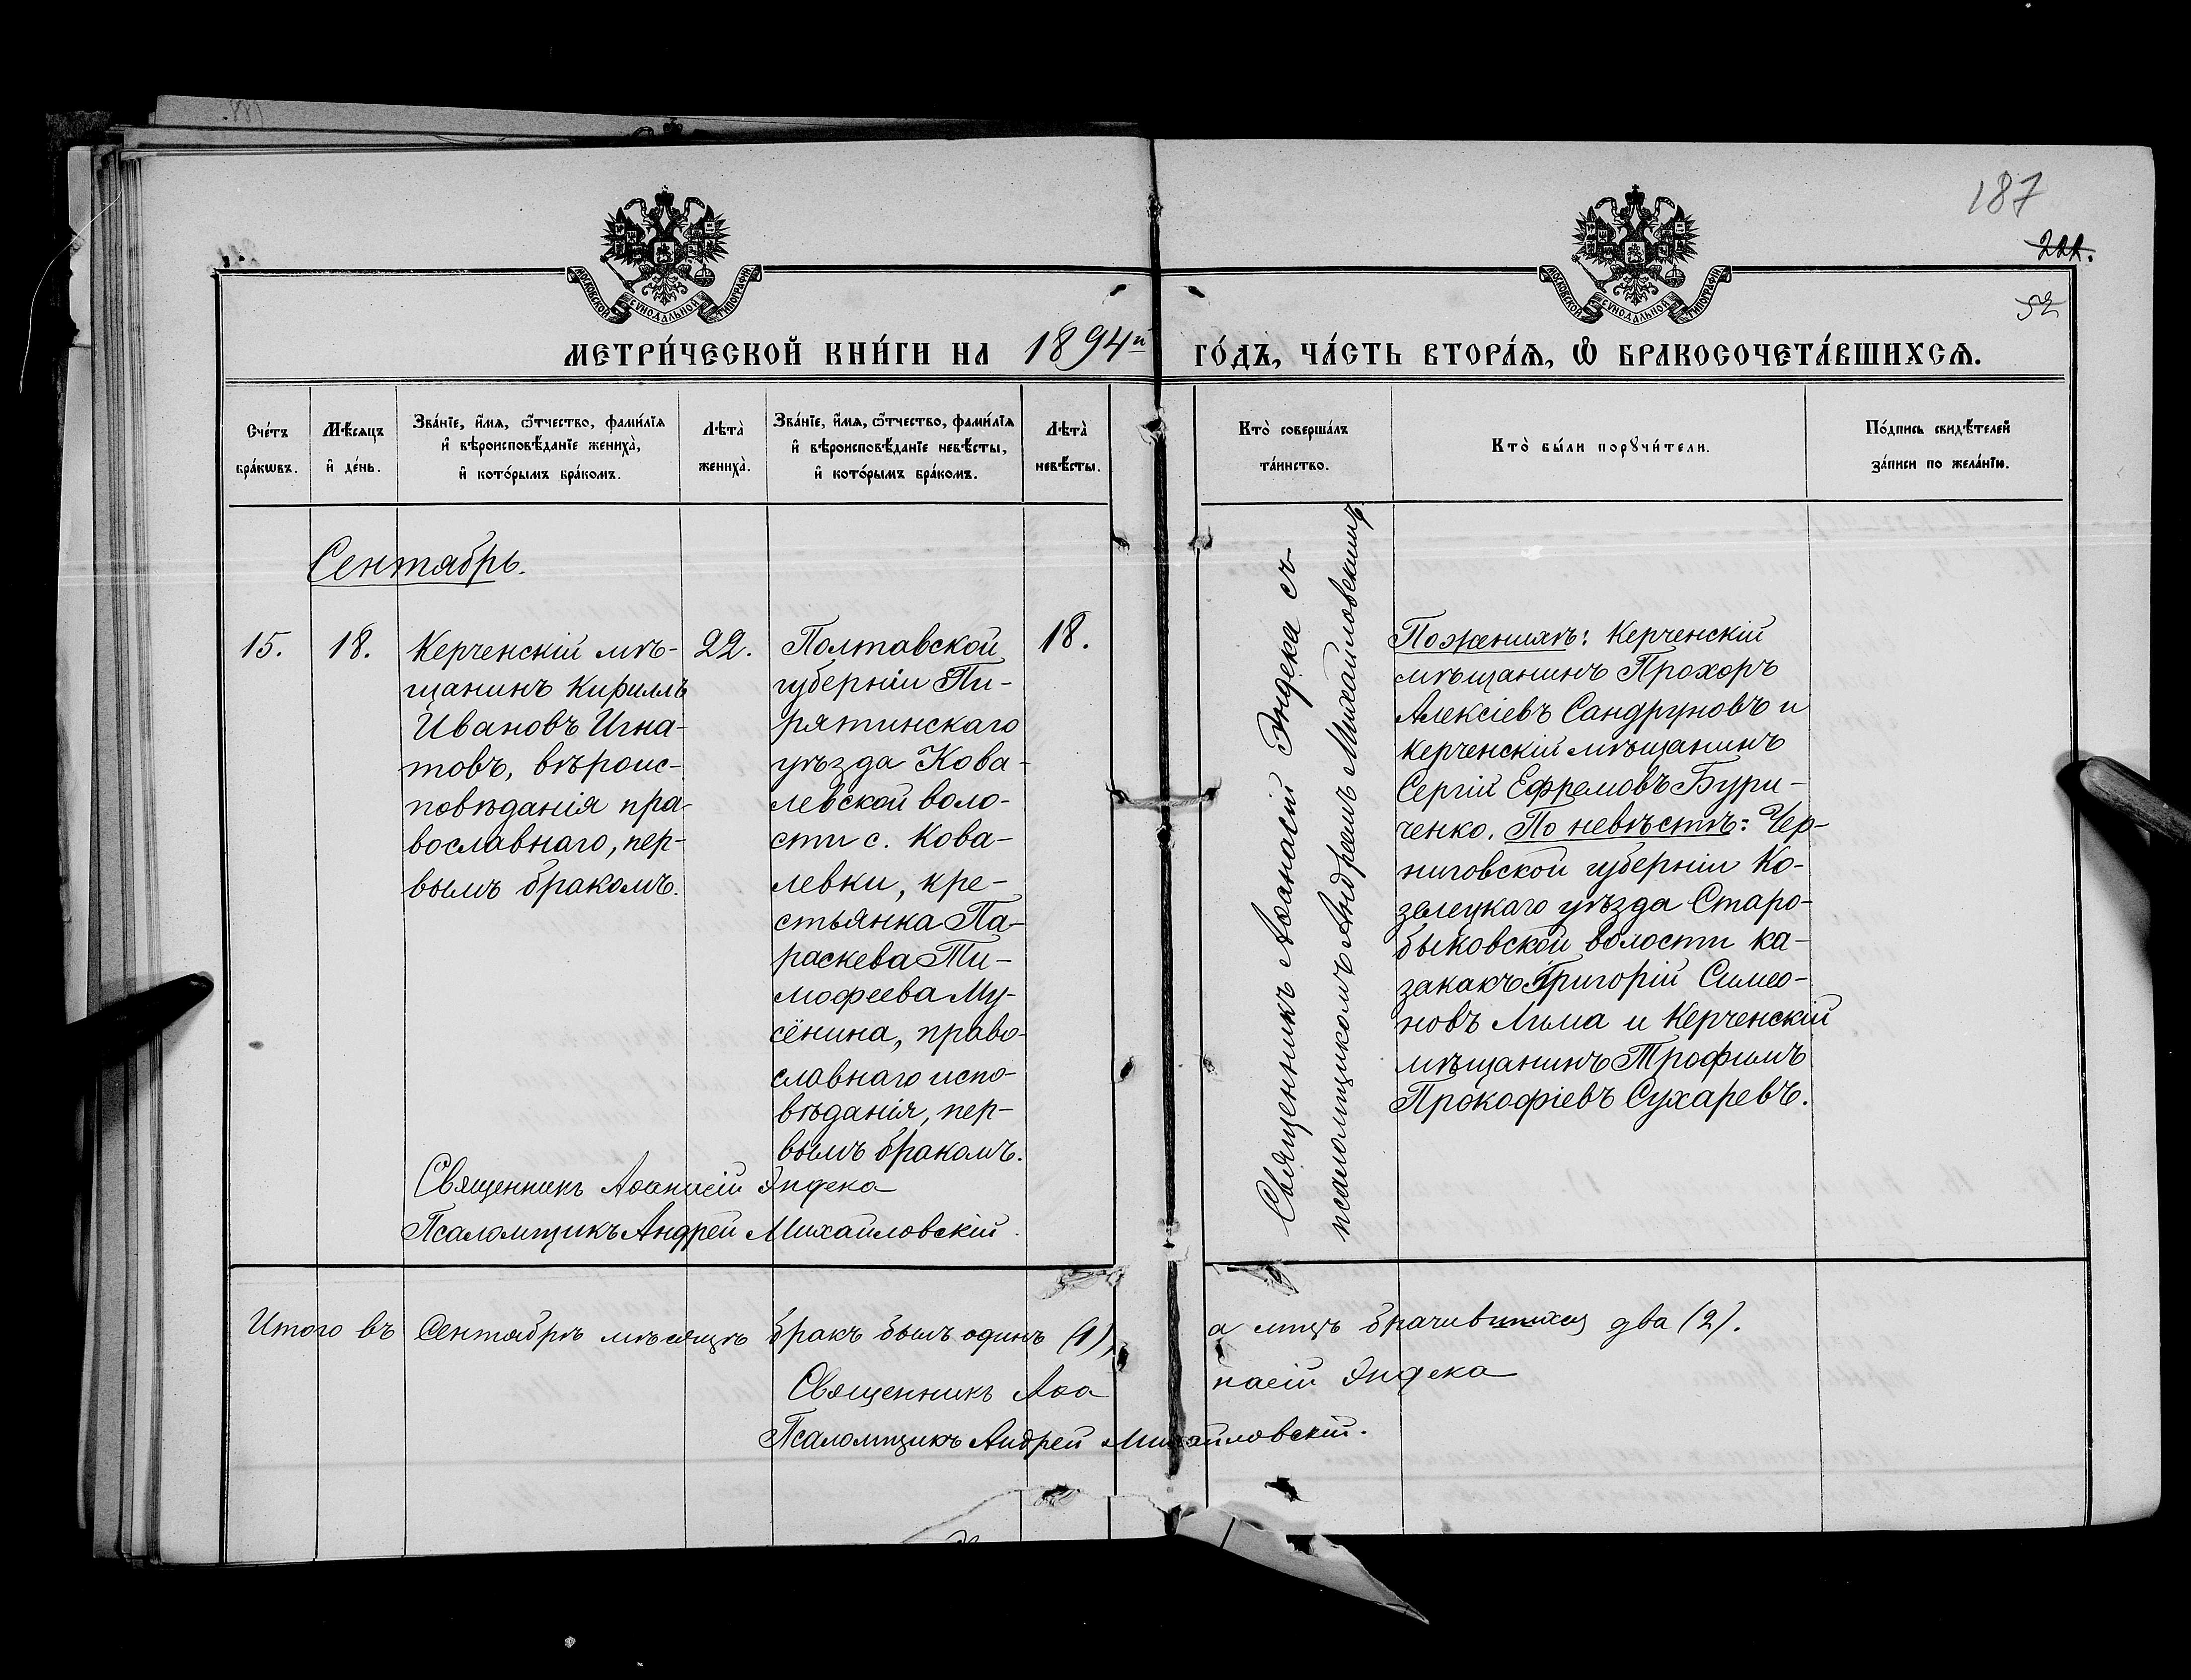 187
222.
52
МОСКОВСКОЙ СѴНОДАЛЬНОЙ ТИПОГРАФІИ
МОСКОВСКОЙ СѴНОДАЛЬНОЙ ТИПОГРАФІИ
МЕТРИ́ЧЕСКОЙ КНИ́ГИ НА 1894й ГО́ДЪ, ЧА́СТЬ ВТОРА́Ѧ, Ѽ БРАКОСОЧЕТА́ВШИХСѦ.
Сче́тъ
бра́кѡвъ.
Мѣ́сяцъ
и҆ де́нь.
Зва́нїе, и҆́мѧ, ѻ҆́тчество, фами́лїѧ
и҆ вѣроисповѣ́данїе жениха̀,
и҆ кото́рымъ бра́комъ.
Лѣта̀
жениха̀.
Зва́нїе, и҆́мѧ, ѻ҆́тчество, фами́лїѧ
и҆ вѣроисповѣ́данїе невѣ́сты,
и҆ кото́рымъ бра́комъ.
Лѣта̀
невѣ́сты.
Кто̀ соверша́лъ
та́инство.
Кто̀ бы́ли порꙋчи́тели.
По́дпись свидѣ́телей
за́писи по жела́нїю.
Сентябрь.
15.
18.
Керченскій мѣ-
щанинъ Кириллъ
Ивановъ Игна-
товъ, вѣроис-
повѣданія пра-
вославнаго, пер-
вымъ бракомъ.
22.
Полтавской
губерніи Пи-
рятинскаго
уѣзда Кова-
левской воло-
сти с. Кова-
левки, кре-
стьянка Па-
раскева Ти-
мофеева Му-
сёнина, право-
славнаго испо-
вѣданія, пер-
вымъ бракомъ.
18.
Священникъ Аѳанасій Эндека съ
псаломщикомъ Андреемъ Михайловскимъ
По женихѣ: Керченскій
мѣщанинъ Прохоръ
Алексіевъ Сандруновъ и
Керченскій мѣщанинъ
Сергій Ефремовъ Бури-
ченко. По невѣстѣ: Чер-
ниговской губерніи Ко-
зелецкаго уѣзда Старо-
быковской волости ка-
закъ Григорій Симео-
новъ Лима и Керченскій
мѣщанинъ Трофимъ
Прокофіевъ Сухаревъ.
Священникъ Аѳанасій Эндека
Псаломщикъ Андрей Михайловскій.
Итого въ Сентябрѣ мѣсяцѣ бракъ былъ одинъ (1), а лицъ брачившихся два (2).
Священникъ Аѳанасій Эндека
Псаломщикъ Андрей Михайловскій.